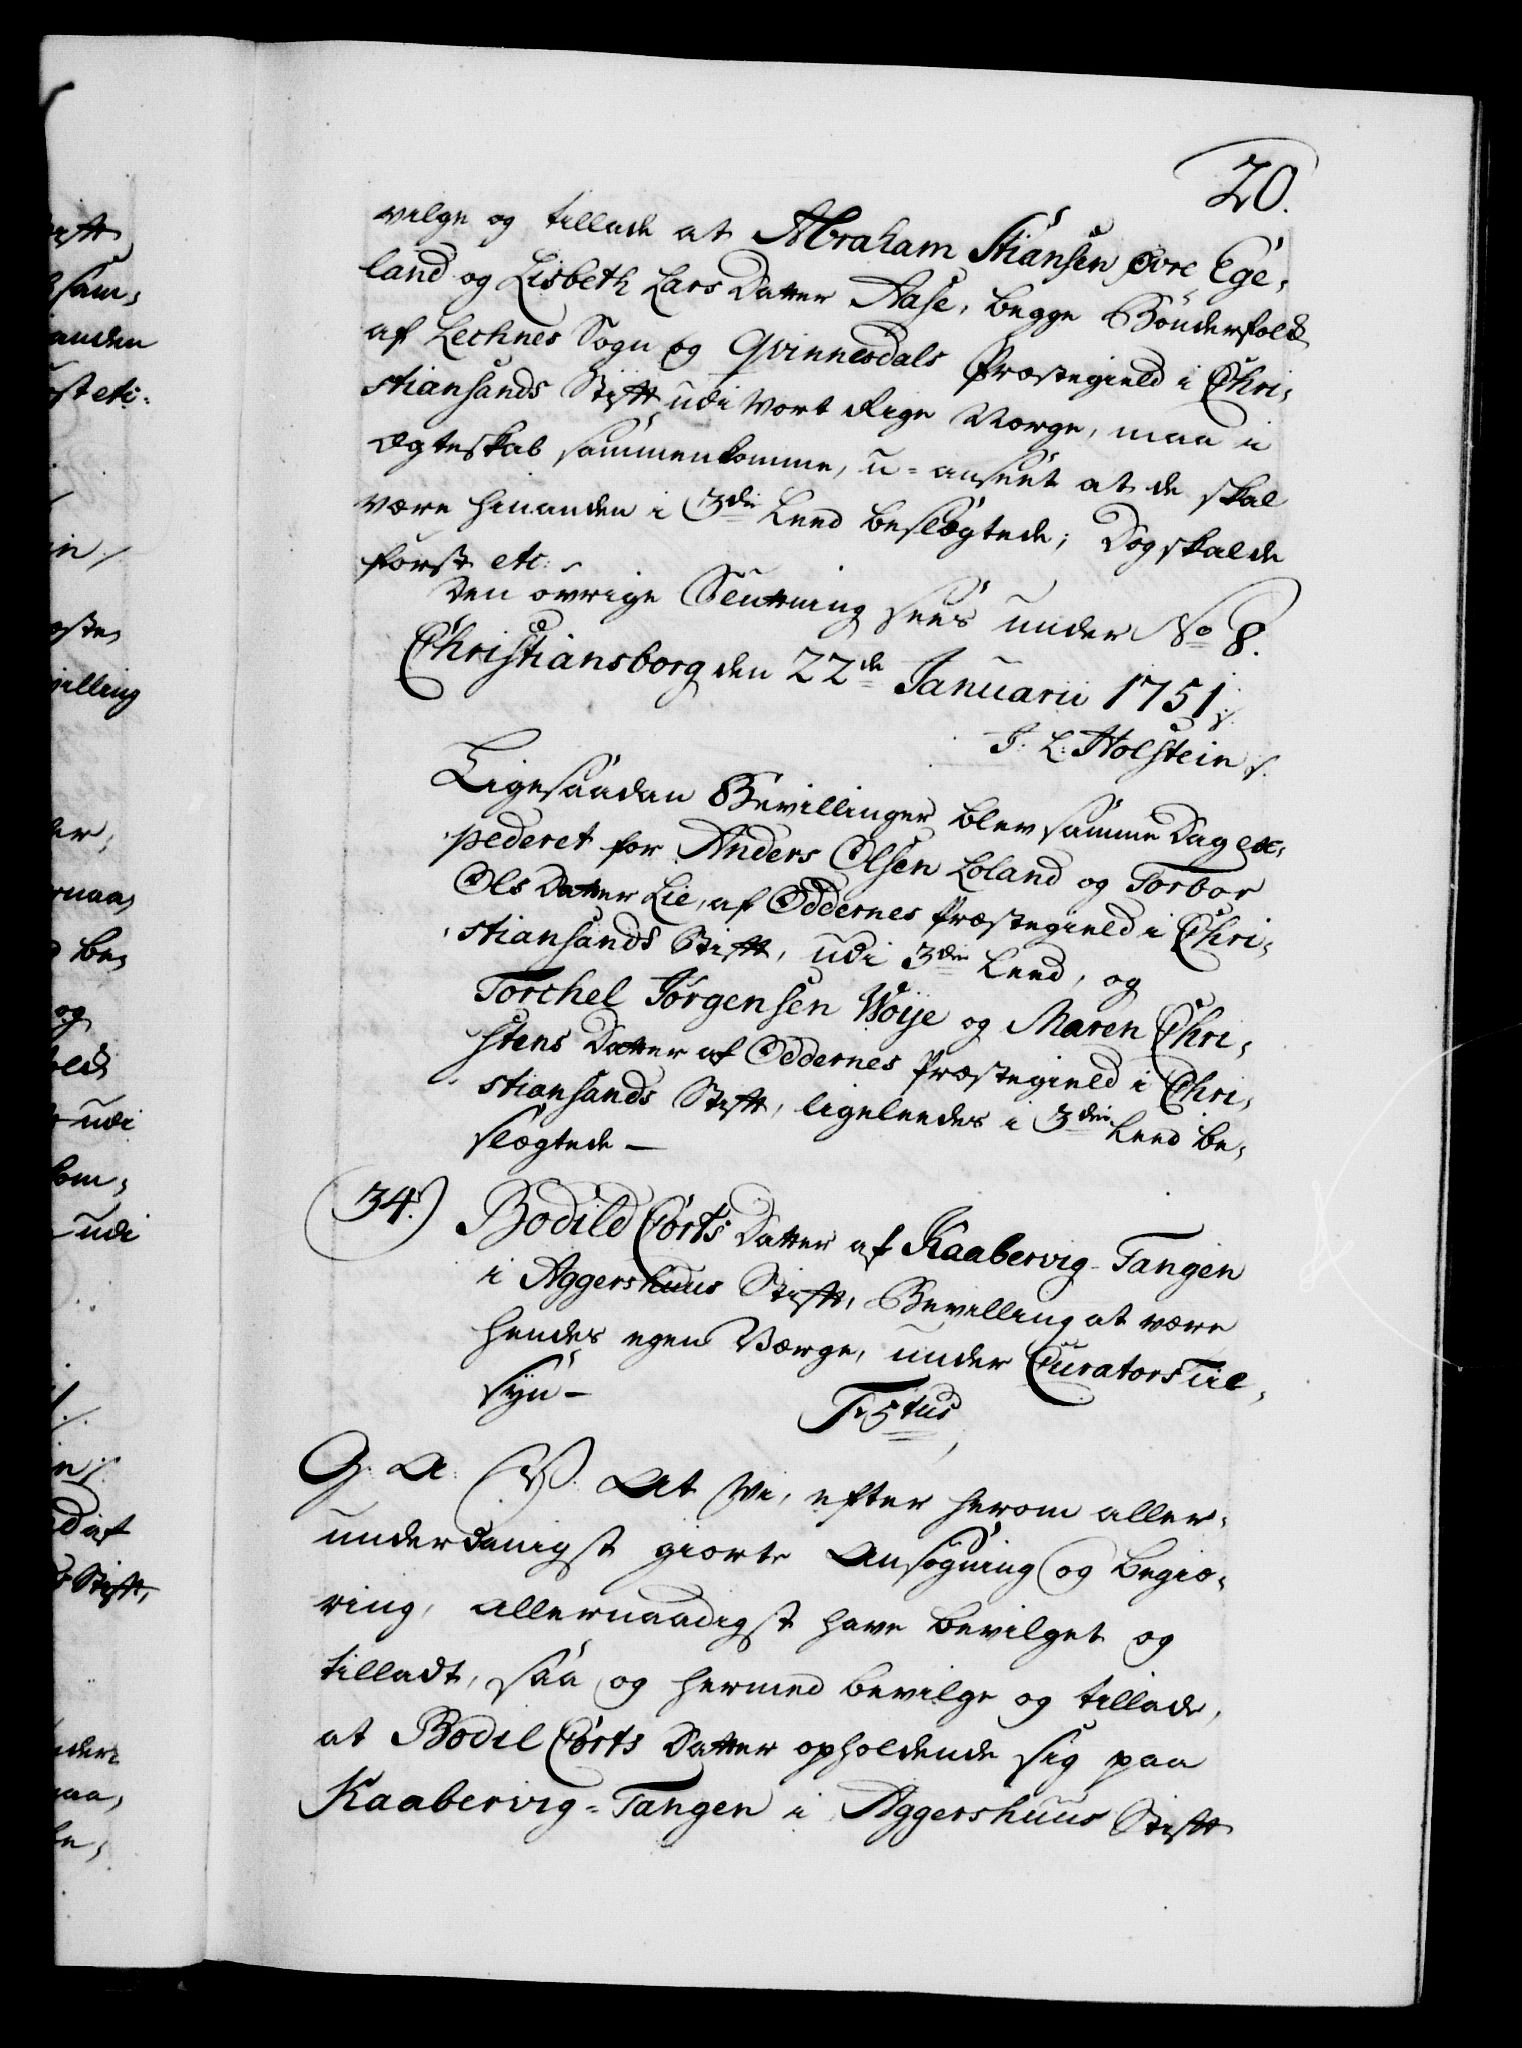 20.
vilge og tillade at Abraham Stiansen øvre Ege,
land og Lisbeth Lars Datter Aase, begge Bönderfolk
af Lechnes Sogn og Qvinnesdals Præstegield i Chri,
stiansands Stift udi Vort Rige Norge, maa i
Ægteskab sammenkomme, u-anseet at de skal
være hinanden i 3die Leed beslægtede; Dog skal de
først etc:
Den øvrige Slutning sees under No 8.
Christiansborg den 22de Januarii 1751.
J. L. Holstein
Ligesaadan Bevillinger blev samme Dag ex,
pederet for Anders Olsen Loland og Torbor
Ols Datter Lie, af Oddernes Præstegield i Chri,
stiansands Stift, udi 3die Leed, og
Torchel Jørgensen Woije og Maren Chri,
stens Datter af Oddernes Præstegield i Chri,
stiansands Stift, ligeleedes i 3die Leed be,
slægtede —
34.) Bodild Corts Datter af Kaabervig-Tangen
i Aggershuus Stift, Bevilling at være
hendes egen Værge, under Curators Til,
syn —
F. 5tus
G. A. V. At Vi, efter herom aller,
underdanigst giorte Ansøgning og Begiæ,
ring, allernaadigst have bevilget og
tilladt, saa og hermed bevilge og tillade,
at Bodil Corts Datter opholdende sig paa
Kaabervig-Tangen i Aggershuus Stift